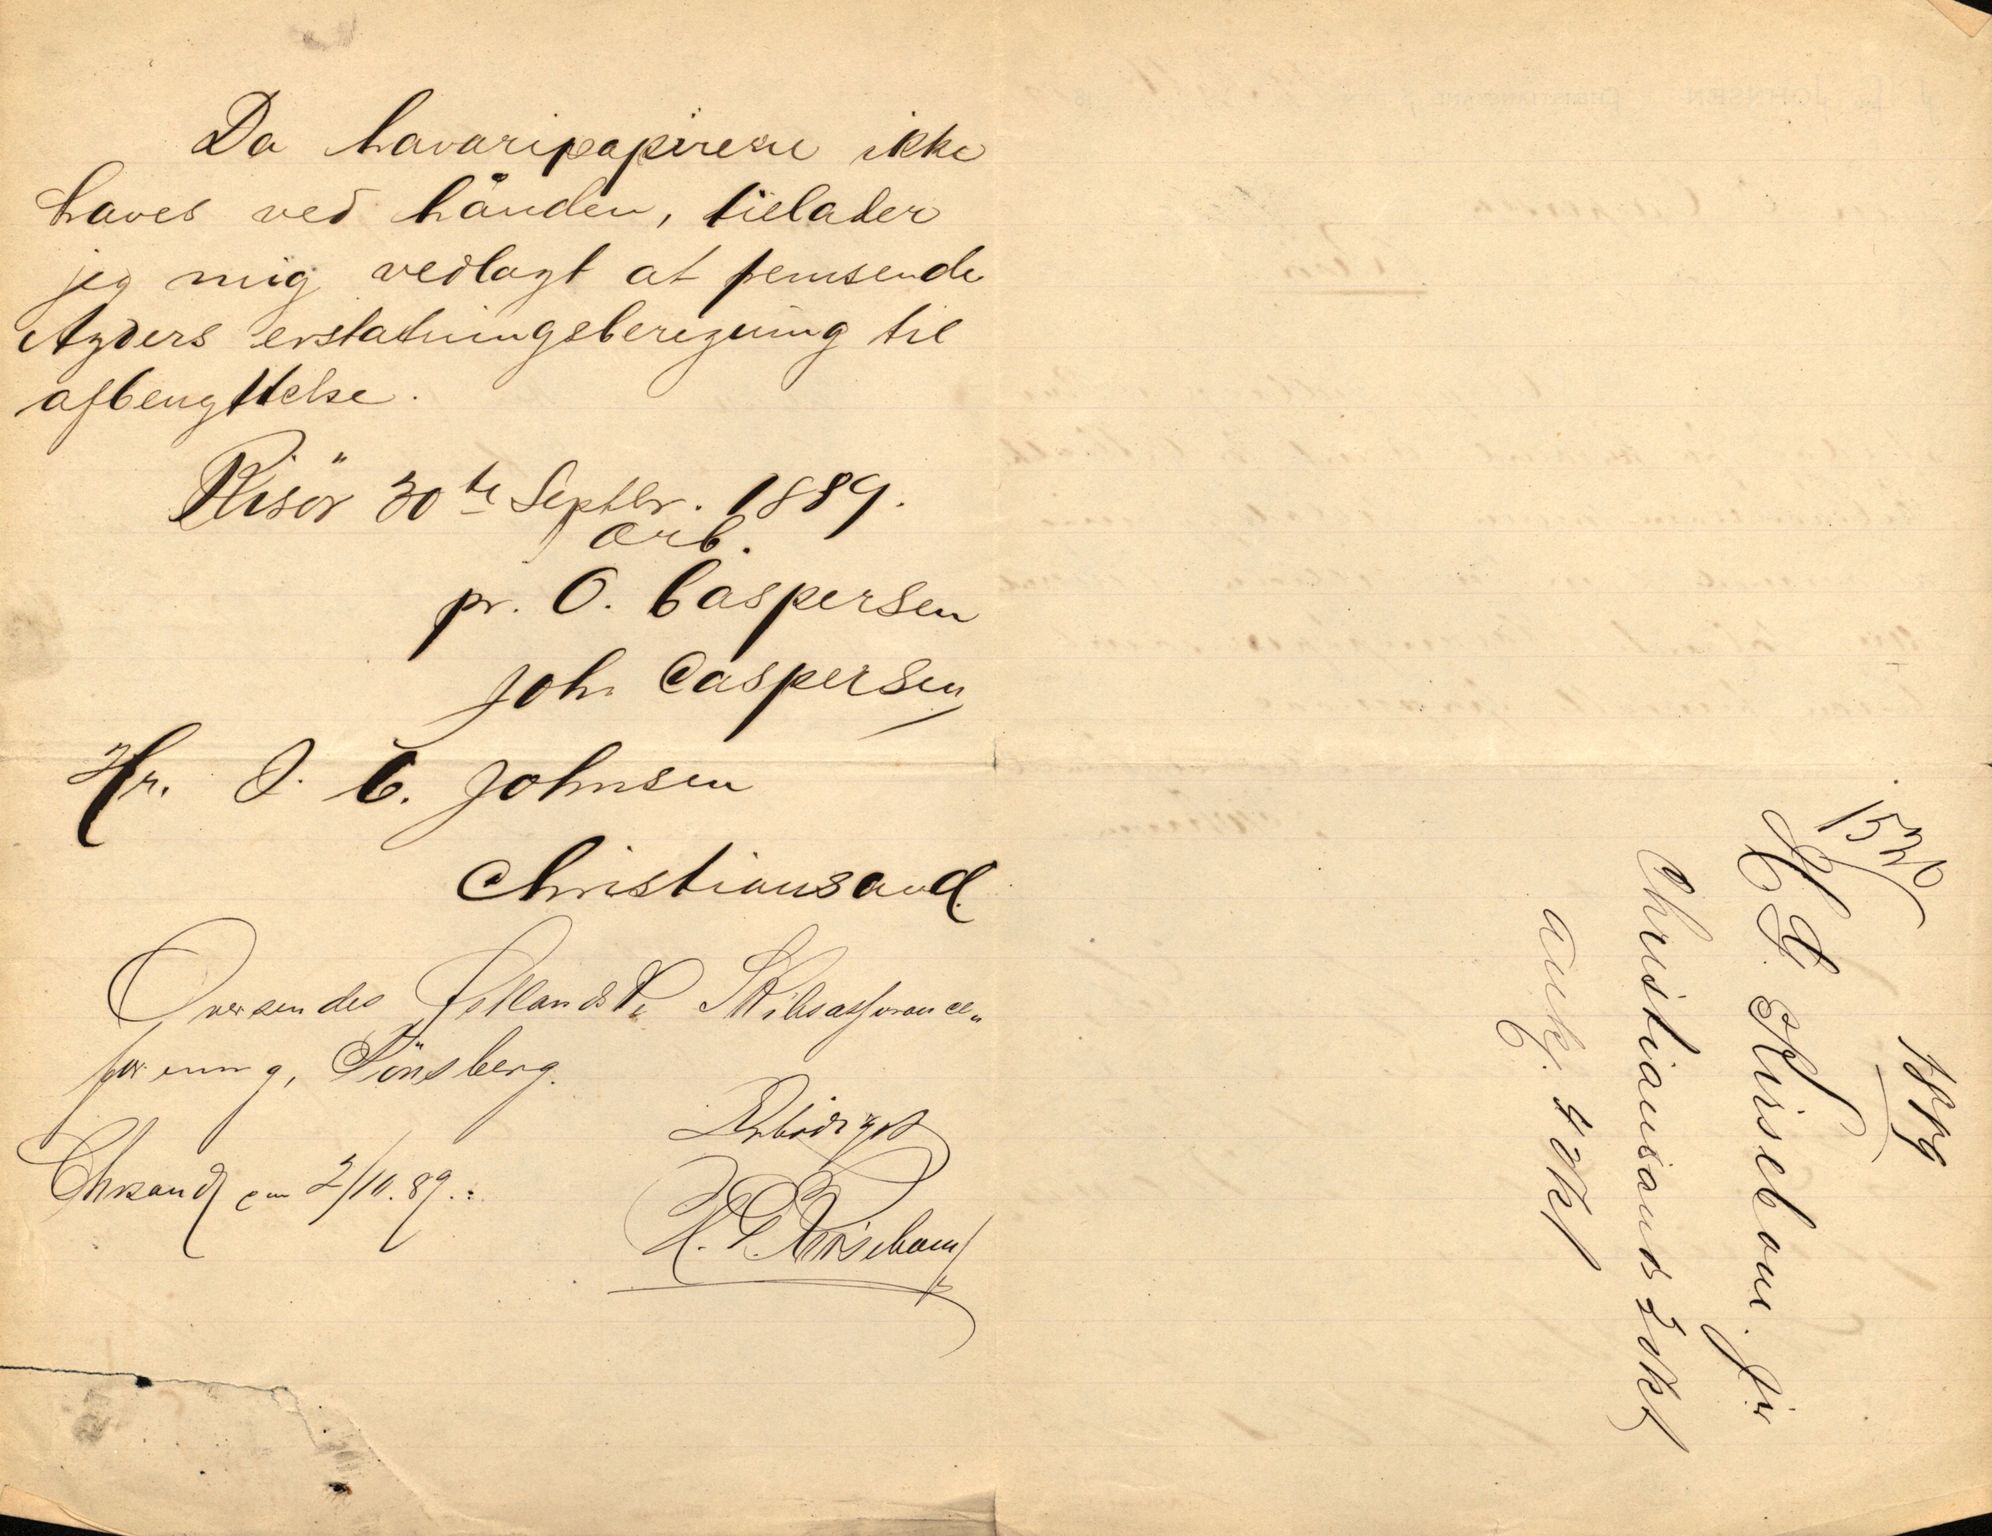 Da havaripapirerne ikke
haves ved hånden, tillader
jeg mig vedlagt at fremsende
Agders erstatningsberegning til
afbenyttelse.
Risör 30te Septbr. 1889.
Ærb.
pr. O. Caspersen
Joh. Caspersen
Hr. J. C. Johnsen
Christiansand.
Oversendes Østlandske Skibsassurance„
forening, Tönsberg.
Chrsand den 2/10.89.
Ærbödigst
H. P. Kirsebom
1536
1889
H. P. Kirsebom jür
Christiansands 2 Okt
ank. 4 Okt